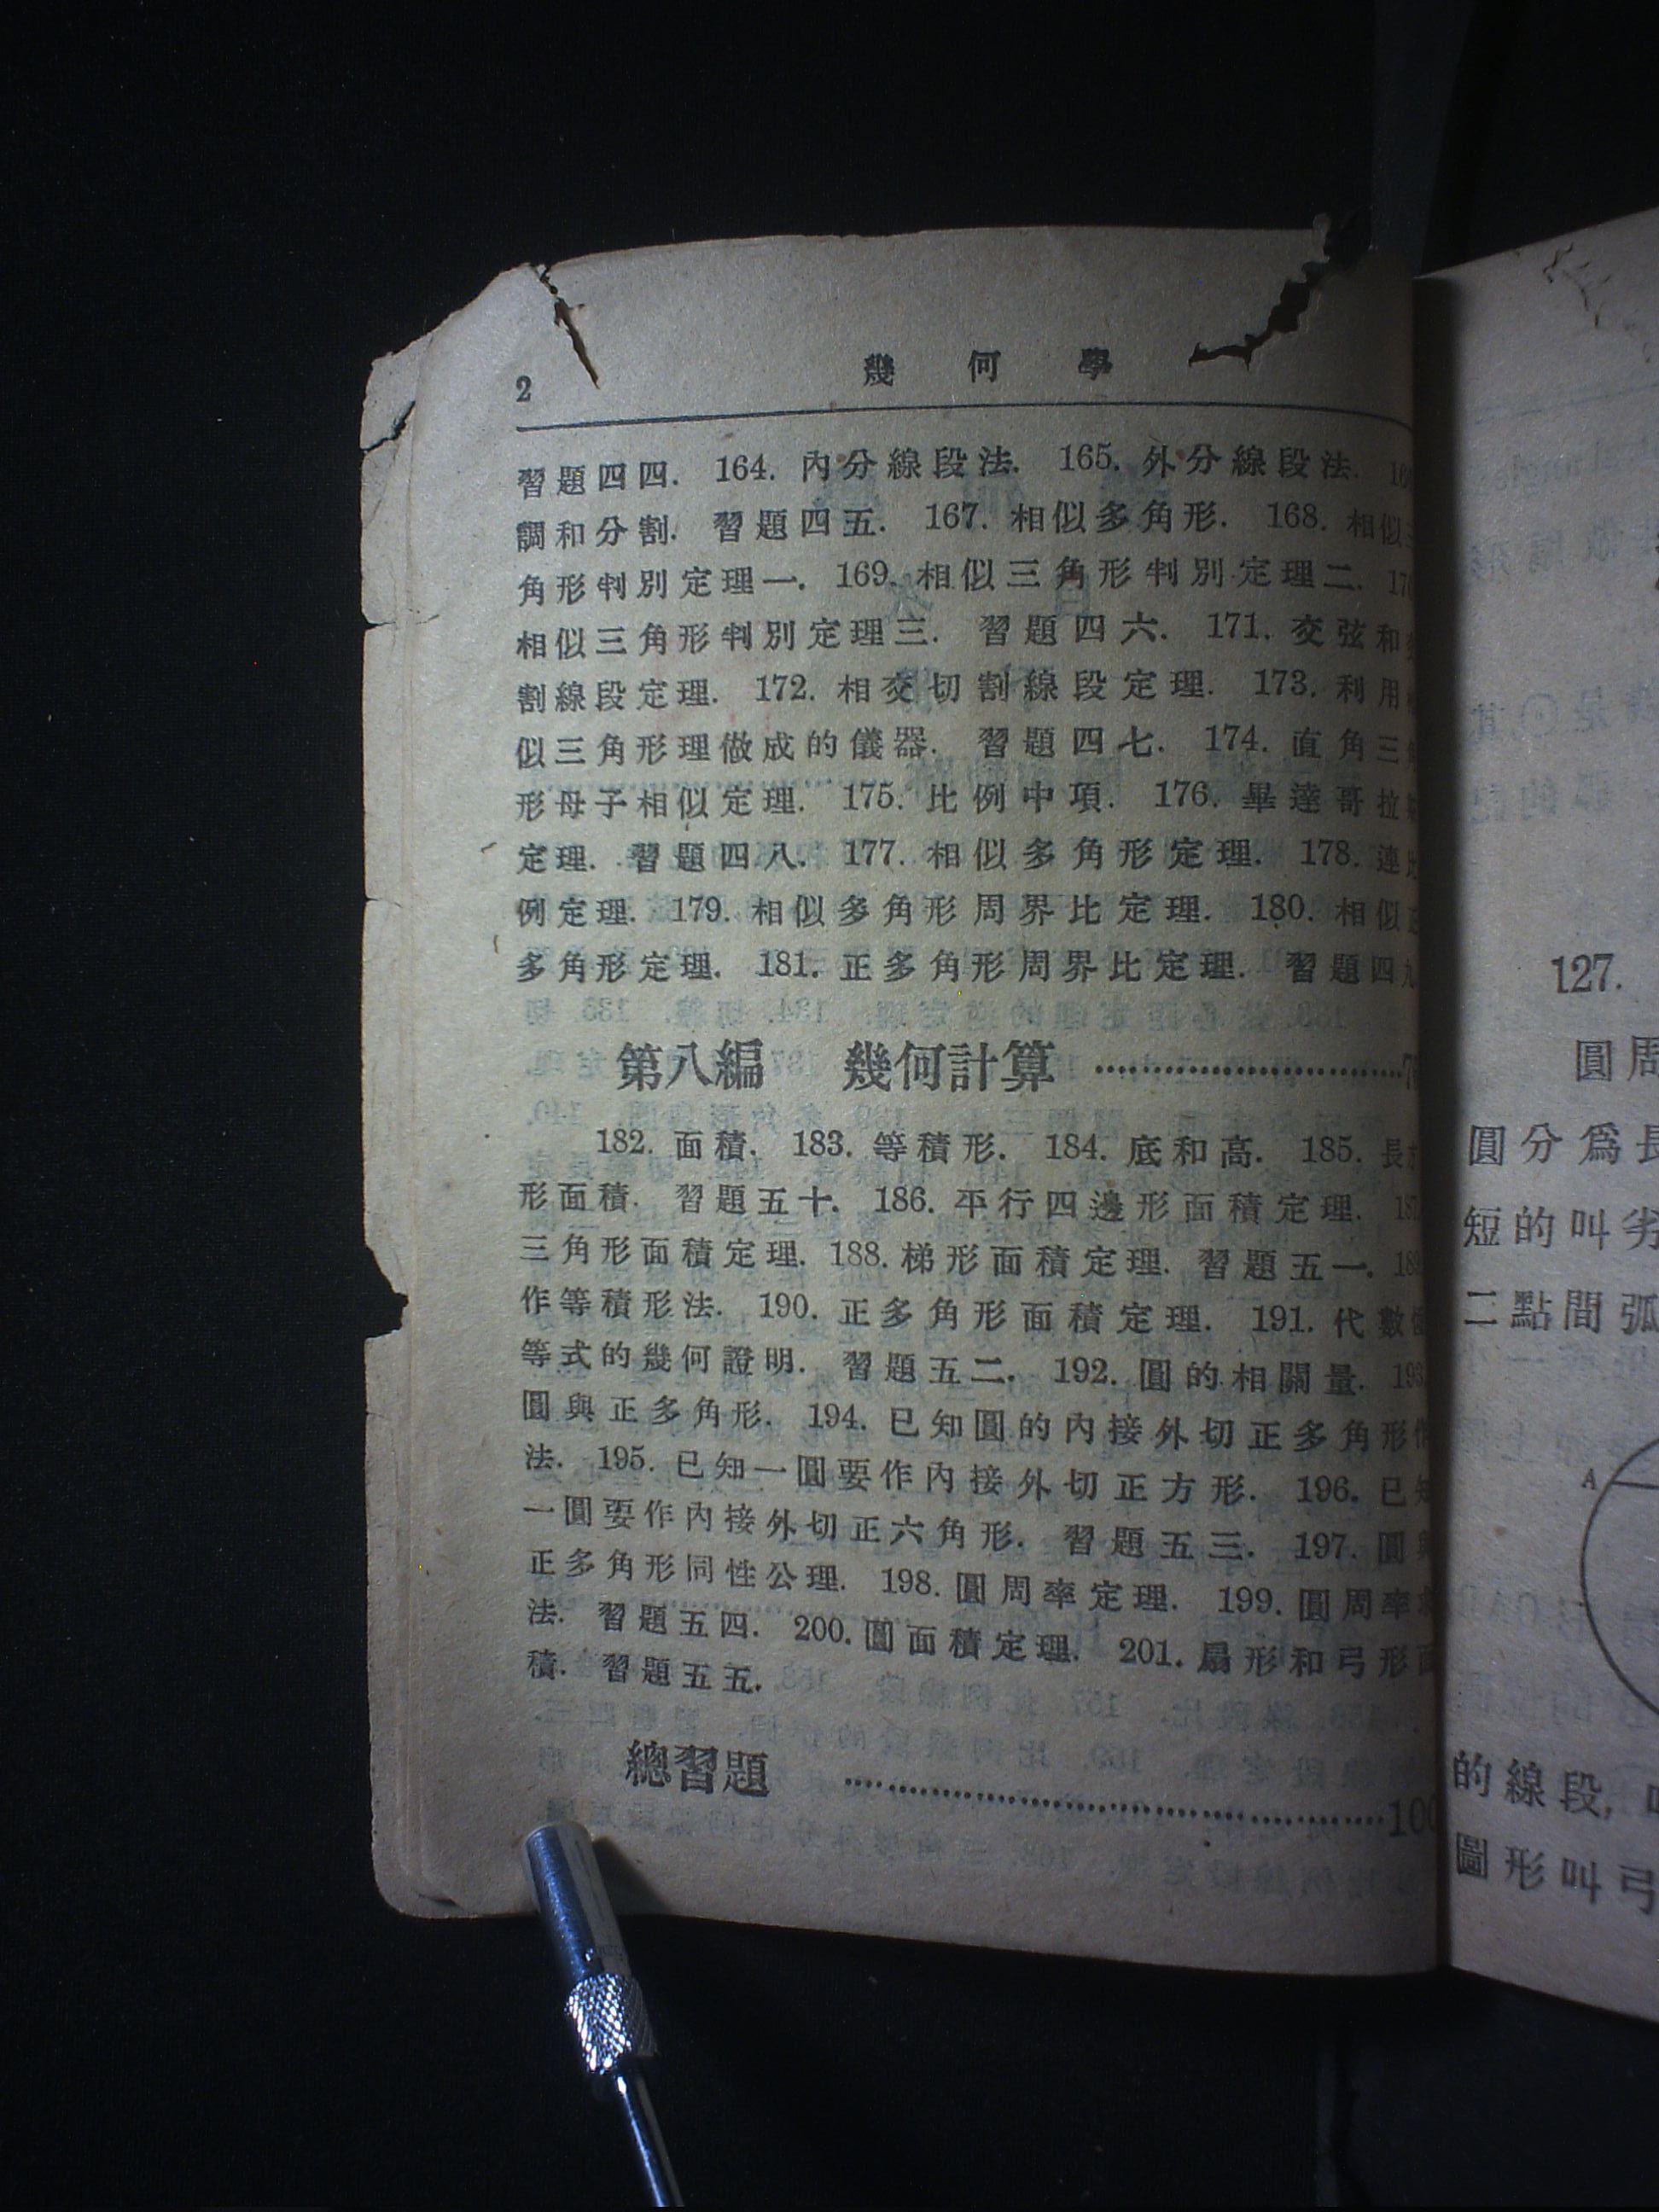 2 幾何學
習題四四. 164. 內分線段法. 165. 外分線段法.
調和分割. 習題四五. 167. 相似多角形. 168. 相似
角形判別定理一. 169. 相似三角形判別定理二.
相似三角形判別定理三. 習題四六. 171. 交弦和
割線段定理. 172. 相交切割線段定理. 173. 利用
似三角形理做成的儀器. 習題四七. 174. 直角三
形母子相似定理. 175. 比例中項. 176. 畢達哥拉
定理. 習題四八. 177. 相似多角形定理. 178. 連比
例定理. 179. 相似多角形周界比定理. 180. 相似正
多角形定理. 181. 正多角形周界比定理. 習題四九
第八編 幾何計算
182. 面積. 183. 等積形. 184. 底和高. 185. 長方
形面積. 習題五十. 186. 平行四邊形面積定理. 187
三角形面積定理. 188. 梯形面積定理. 習題五一. 189
作等積形法. 190. 正多角形面積定理. 191. 代數恆
等式的幾何證明. 習題五二. 192. 圓的相關量. 193.
圓與正多角形. 194. 已知圓的內接外切正多角形作
法. 195. 已知一圓要作內接外切正方形. 196. 已知
一圓要作內接外切正六角形. 習題五三. 197. 圓與
正多角形同性公理. 198. 圓周率定理. 199. 圓周率求
法. 習題五四. 200. 圓面積定理. 201. 扇形和弓形面
積. 習題五五.
總習題 100
127.
圓周
圓分爲長
短的叫劣
二點間弧
A
的線段,
圖形叫弓